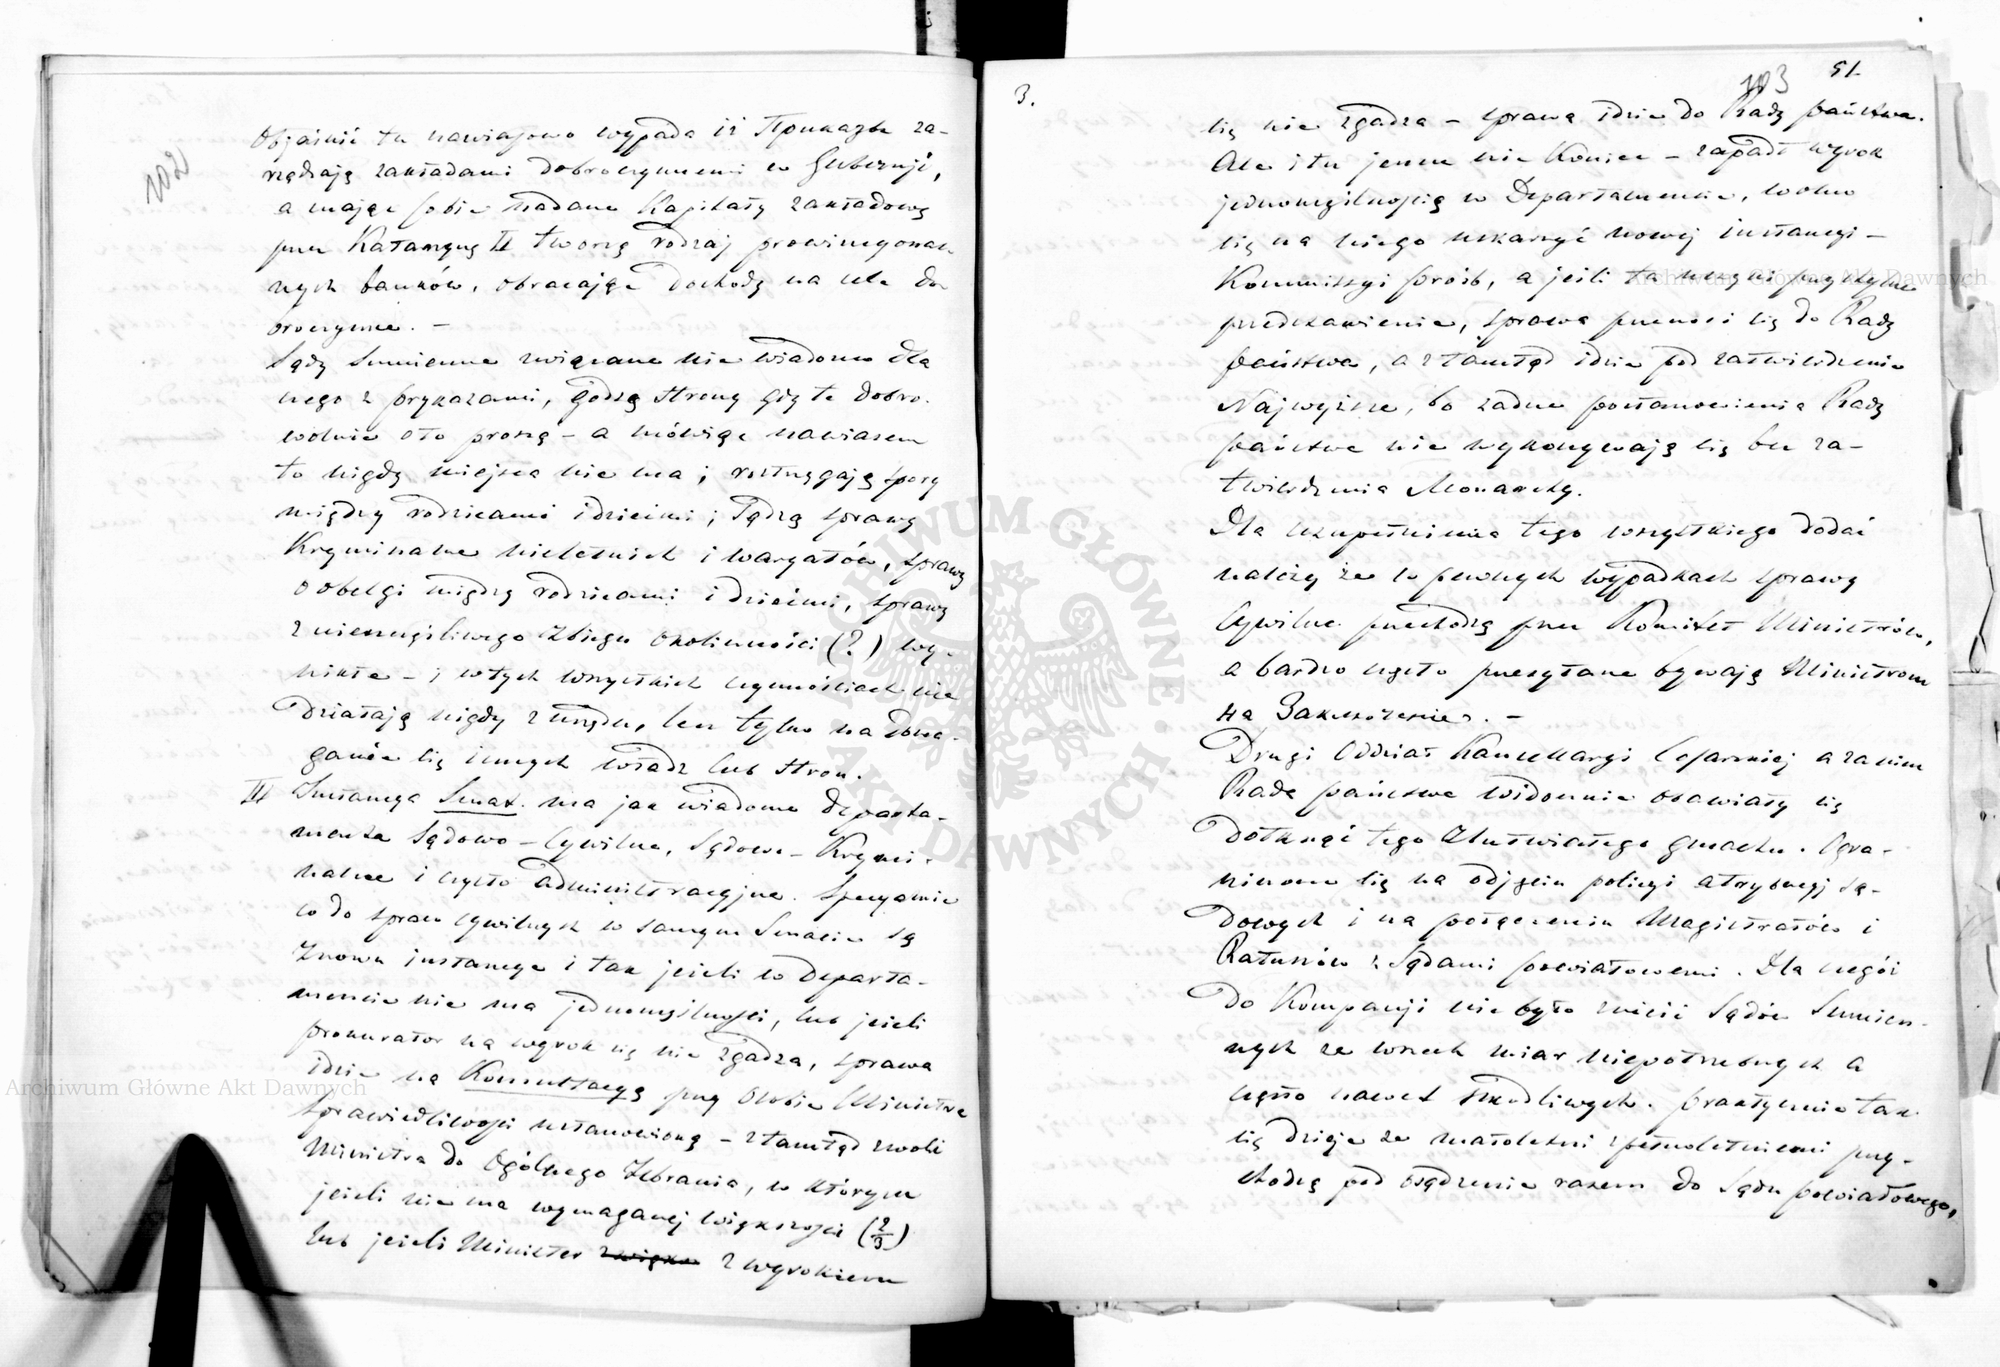 102
Objaśnić tu nawiasowo wypada iż Приказы za-
rządzają zakładami dobroczynnemi w Gubernji,
a mając sobie nadane Kapitały zakładowe
przez Katarzynę II tworzą rodzaj prowincyonal-
nych banków, obracając dochody na cele do
broczynne. –
Sądy Sumienne związane nie wiadomo dla
czego z prykazami, godzą strony gdy te dobro-
wolnie oto proszą – a mówiąc nawiasem
to nigdy miejsca nie ma; rozstrzygają spory
między rodzicami i dziećmi; Sądzą sprawy
Kryminalne nieletnich i waryatów, sprawy
o obelgi między rodzicami i dziećmi, sprawy
z nieszczęśliwego zbiegu okoliczności (?) wy-
nikłe – i w tych wszystkich czynnościach nie
działają nigdy z urzędu, lecz tylko na doma-
ganie się innych władz lub stron.
III Instancya Senat. ma jak wiadomo departa-
menta Sądowo-Cywilne, Sądowo-Krymi-
nalne i czysto administracyjne. Specyalnie
co do spraw cywilnych w samym Senacie są
znowu instancye i tak jeżeli w Departa-
mencie nie ma jednomyślności, lub jeżeli
prokurator na wyrok się nie zgadza, sprawa
idzie na Konsultacyą przy osobie Ministra
Sprawiedliwości ustanowioną – ztamtąd z woli
Ministra do Ogólnego Zebrania, w którym
jeżeli nie ma wymaganej większości (2/3)
lub jeżeli Minister z wyrokiem
3.
103 51
się nie zgadza – sprawa idzie do Rady państwa.
Ale i tu jeszcze nie koniec – zapadł wyrok
jednomyślnością w Departamencie, wolno
się na niego uskarżyć nowej instancyi –
Kommissyi próśb, a jeśli ta uczyni przychylne
przedstawienie, sprawa przenosi się do Rady
państwa, a ztamtąd idzie pod zatwierdzenie
Najwyższe, bo żadne postanowienia Rady
państwa nie wykonywają się bez za-
twierdzenia Monarchy.
Dla uzupełnienia tego wszystkiego dodać
należy że w pewnych wypadkach sprawy
Cywilne przechodzą przez Komitet Ministrów,
a bardzo często przesyłane bywają Ministrom
на Заключение. –
Drugi Oddział Kancellaryi Cesarskiej a za nim
Rada państwa widocznie obawiały się
dotknąć tego zbutwiałego gmachu. Ogra-
niczono się na odjęciu policyi atrybucyj są-
dowych i na połączeniu Magistratów i
Ratuszów z Sądami powiatowemi. Dla czegóż
do Kompanji nie było znieść Sądów Sumien-
nych ze wszech miar niepotrzebnych a
często nawet szkodliwych. Praktycznie tak
się dzieje że małoletni z pełnoletniemi przy-
chodzą pod osądzenie razem do Sądu powiatowego,
Archiwum Główne Akt Dawnych
Archiwum Główne Akt Dawnych
ARCHIWUM GŁÓWNE AKT DAWNYCH